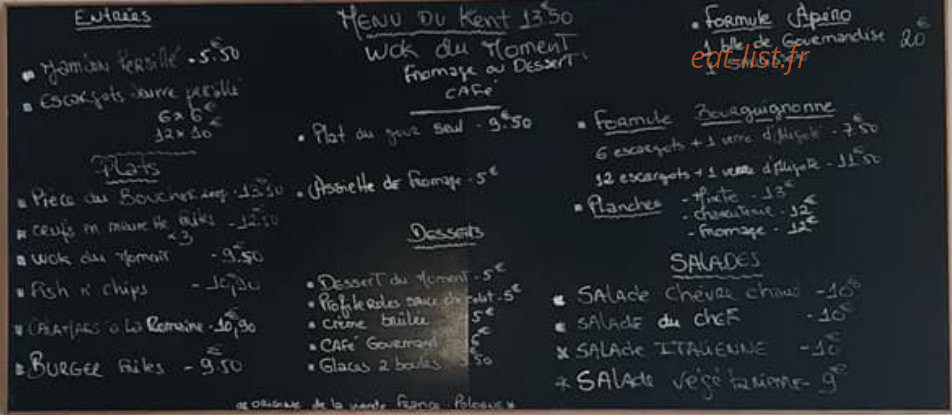 Entrées
Jambon Persillé - 5.50
Escargots beurre persillé
6 x 6€
12 x 10€
Plats
Pièce du Boucher - 13.50
Œufs en meurette frites - 12.50
x3
Wok du Moment - 9€50
Fish n' chips - 10,90
CALAMARS à la Romaine - 10,90
BURGER frites - 9.50
MENU DU Kent 13€50
Wok du Moment
Fromage ou Dessert
CAFé
Plat du jour seul - 9€50
Assiette de fromage - 5€
Desserts
Dessert du Moment - 5€
Profiteroles sauce chocolat - 5€
Crème brûlée 5€
CAFé Gourmand €
Glaces 2 boules 50
* origine de la viande France - Pologne *
Formule Apéro
1 blle de Gourmandise 20€
1
eat-list.fr
Formule Bourguignonne
6 escargots + 1 verre d'Aligoté - 7€50
12 escargots + 1 verre d'Aligoté - 11€50
Planches - Mixte - 13€
- charcuterie - 12€
- Fromage - 12€
SALADES
SALADE Chèvre chaud - 10€
SALADE du chef - 10€
SALADE ITALIENNE - 10€
SALADE végétarienne - 9€